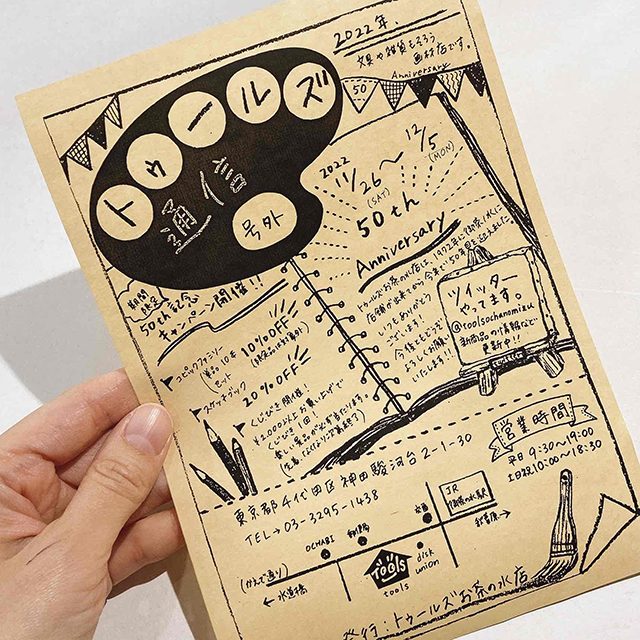 2022年、
文具や雑貨もそろう
画材店です。
Anniversary
50
トゥールズ
通信
号外
2022
11/26〜12/5
(SAT)
(MON)
50th
Anniversary
トゥールズお茶の水店は、1972年に御茶ノ水に
店舗が出来てから今年で50周年を迎えました。
いつもありがとう
ございます!
今後もどうぞ
よろしくお願い
いたします!!
ツイッター
やってます。
@toolsochanomizu
新商品の情報など
更新中!!
期間
限定
50th記念
キャンペーン開催!!
コピックファミリー
10%OFF
セット
スケッチブック
20%OFF
くじびき開催!
¥2,000以上お買い上げで
くじびき1回!
楽しい景品が必ず当たります。
営業時間
平日 9:30〜19:00
土日祝10:00〜18:30
東京都千代田区神田駿河台2-1-30
TEL→03-3295-1438
OCHABI
交番
JR
御茶の水駅
秋葉原→
(かえで通り)
←水道橋
TOOLS
tools
disk
union
発行:トゥールズお茶の水店